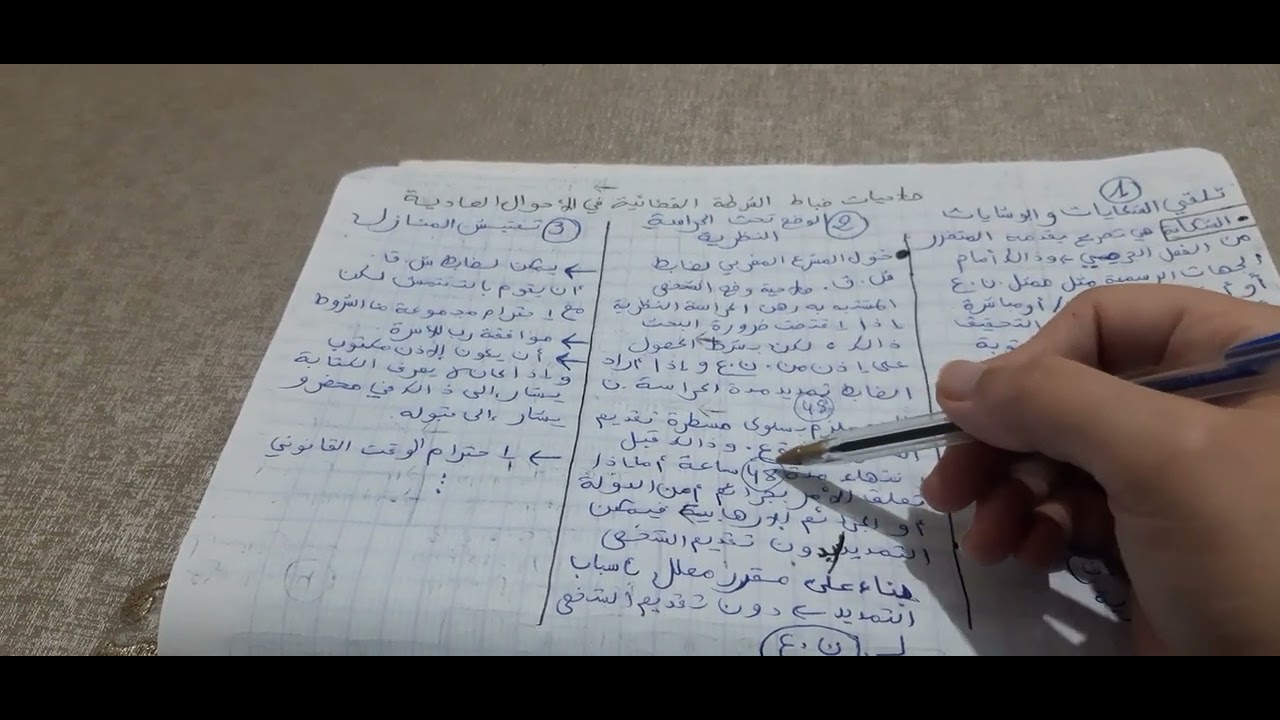 صلاحيات ضباط الشرطة القضائية في الأحوال العادية
1
تلقي الشكايات والوشايات
• الشكاية هي تصريح يقدمه المتضرر
من الفعل الجرمي وذالك أمام
الجهات الرسمية مثل ممثل ن.ع
أو مباشرة
التحقيق
2 الوضع تحت الحراسة
النظرية
• خول المشرع المغربي لضابط
ش.ق. صلاحية وضع الشخص
المشتبه به رهن الحراسة النظرية
إذا اقتضت ضرورة البحث
ذالك، لكن بشرط الحصول
على إذن من. ن.ع و إذا أراد
الضابط تمديد مدة الحراسة.ن
48
سلوى مسطرة تقديم
وذالك قبل
انتهاء مدة 48 ساعة أما إذا
تعلق الأمر بجرائم أمن الدولة
أو الجرائم الإرهابية فيمكن
التمديد بدون تقديم الشخص
بناء على مقرر معلل بأسباب
التمديد دون تقديم الشخص
لـ. ن.ع
3 تفتيش المنازل
← يمكن لضابط ش.ق.
أن يقوم بالتفتيش لكن
مع احترام مجموعة من الشروط
← موافقة رب الأسرة
← أن يكون الإذن مكتوب
و إذا كان لا يعرف الكتابة
يشار إلى ذالك في محضر و
يشار إلى قبوله.
← احترام الوقت القانوني